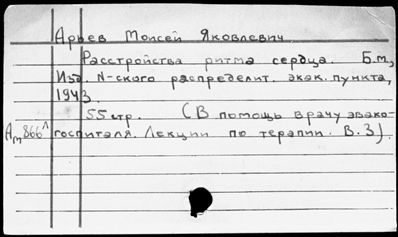 Арьев Моисей Яковлевич
Расстройства ритма сердца. Б.м,
Изд. N-ского распределит. эвак. пункта,
1943.
55 стр. (В помощь врачу эвако-
Ам866л госпиталя. Лекции по терапии. В.3).